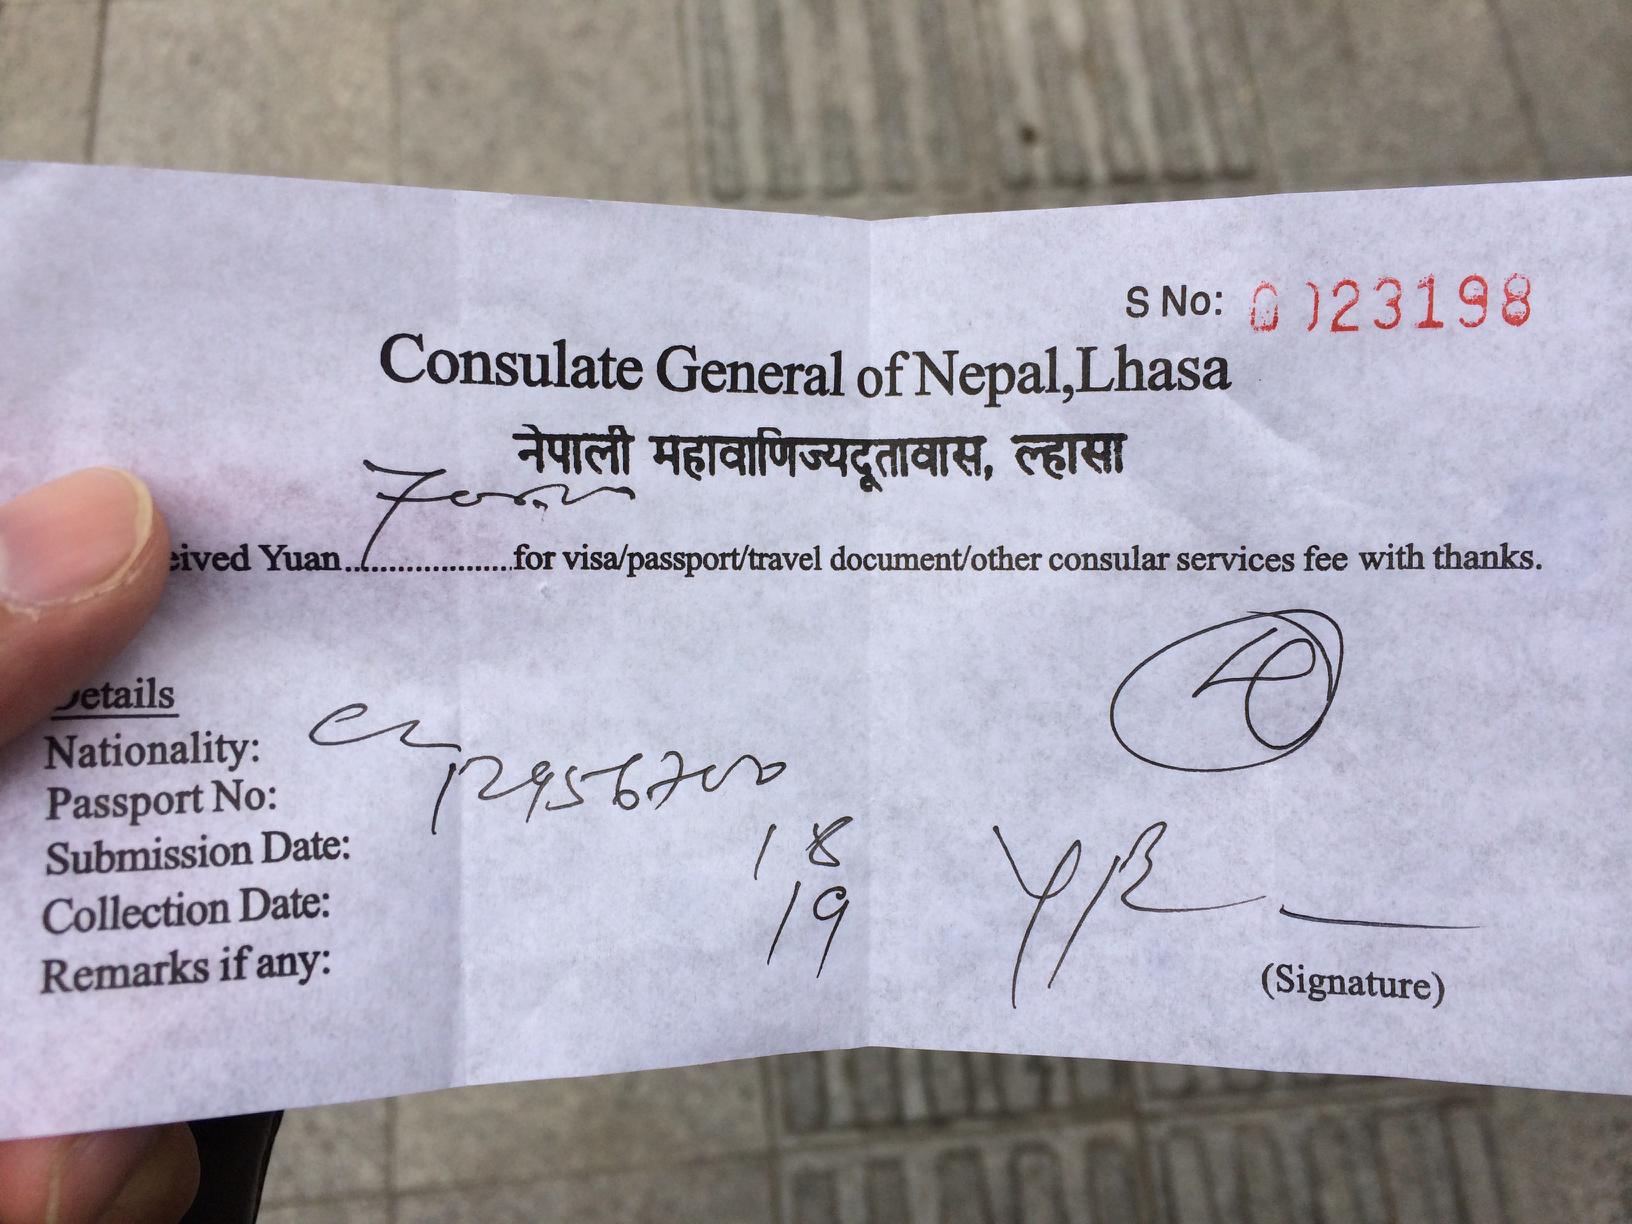 S No: 0023198
Consulate General of Nepal,Lhasa
नेपाली महावाणिज्यदूतावास, ल्हासा
eived Yuan....................for visa/passport/travel document/other consular services fee with thanks.
Details
Nationality:
Passport No: 12956700
Submission Date: 18
Collection Date: 19
Remarks if any:
(Signature)